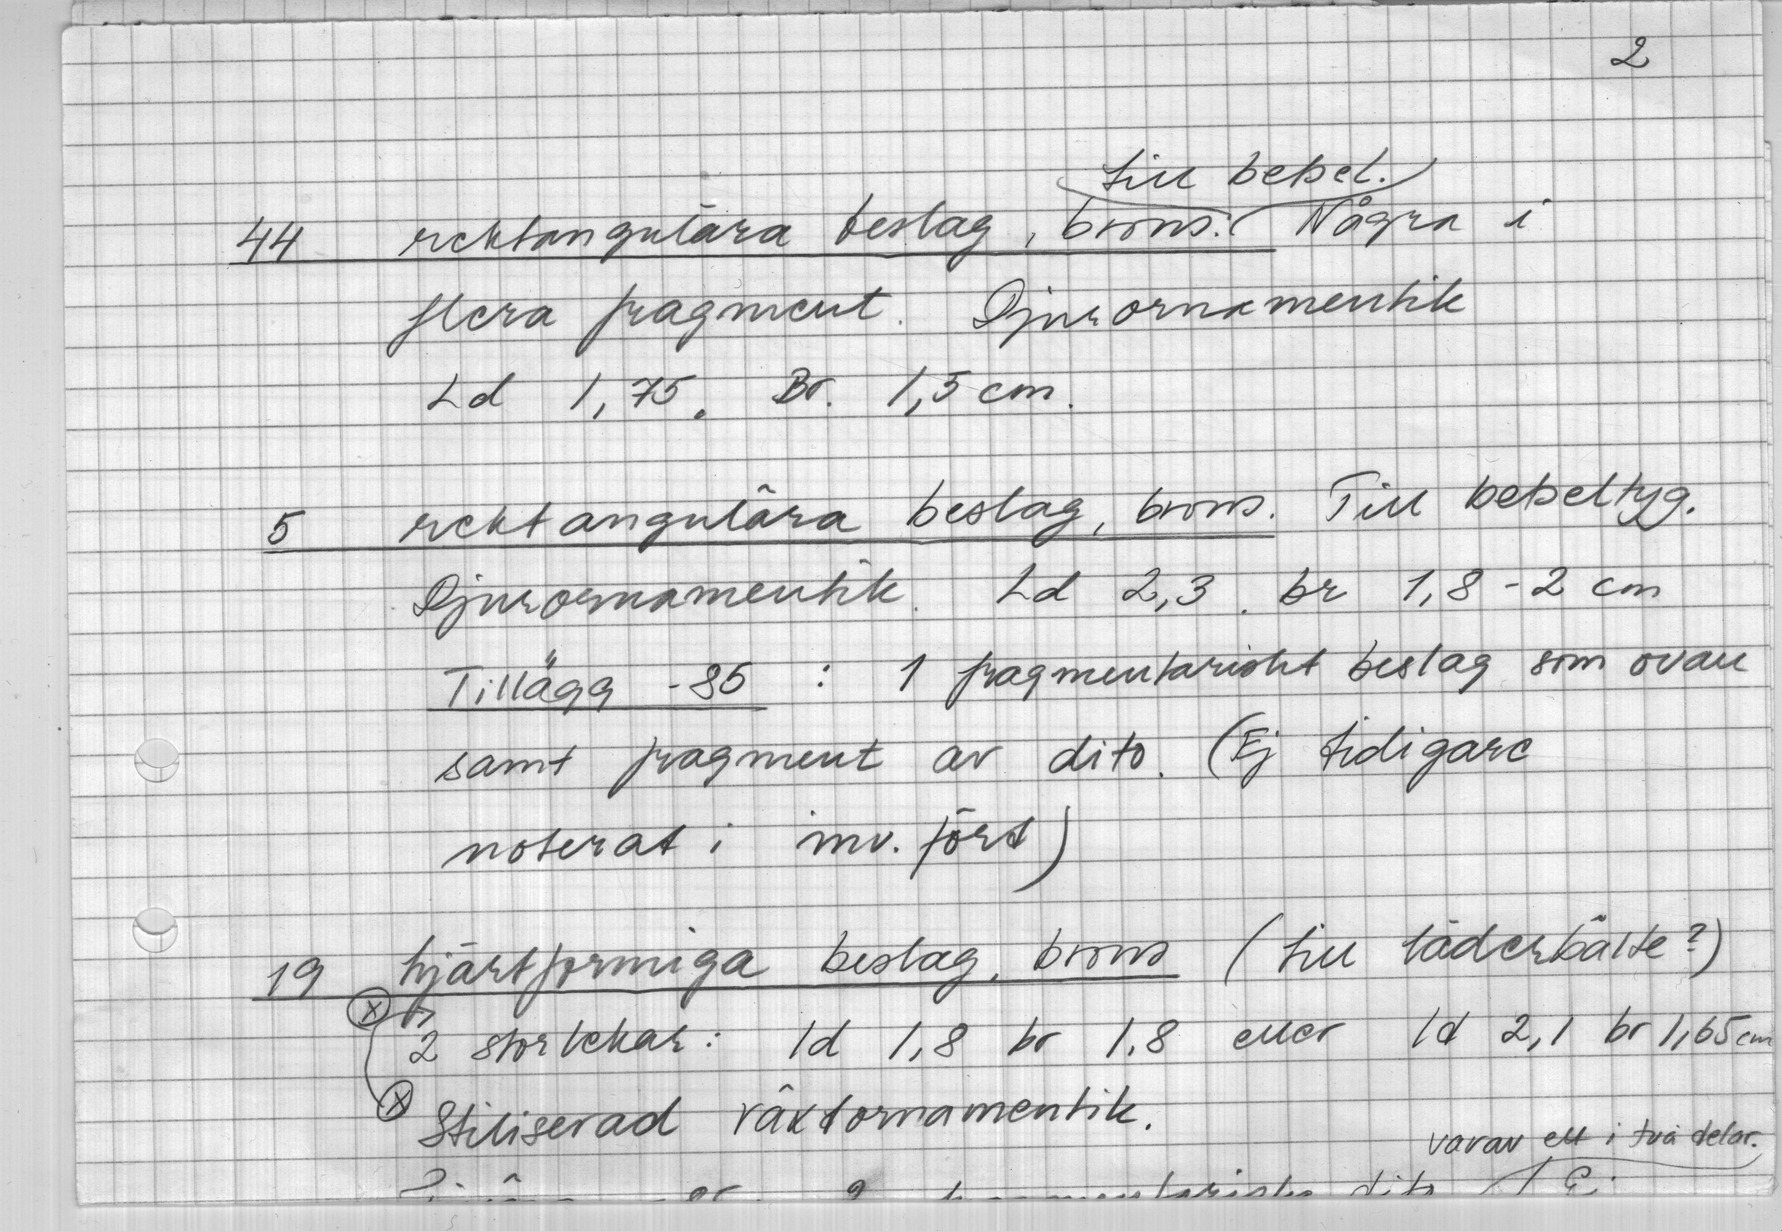 2
till betsel.
44 rektangulära beslag, brons. Några i
flera fragment. Djurornamentik
Ld 1,75. Br. 1,5 cm.
5 rektangulära beslag, brons. Till betseltyg.
Djurornamentik. Ld 2,3. br 1,8 - 2 cm
Tillägg -85 : 1 fragmentariskt beslag som ovan
samt fragment av dito. (Ej tidigare
noterat i inv. fört)
19 hjärtformiga beslag, brons (till läderbälte?)
2 storlekar: ld 1,8 br 1,8 eller ld 2,1 br 1,65 cm
Stiliserad växtornamentik.
varav ett i två delar.